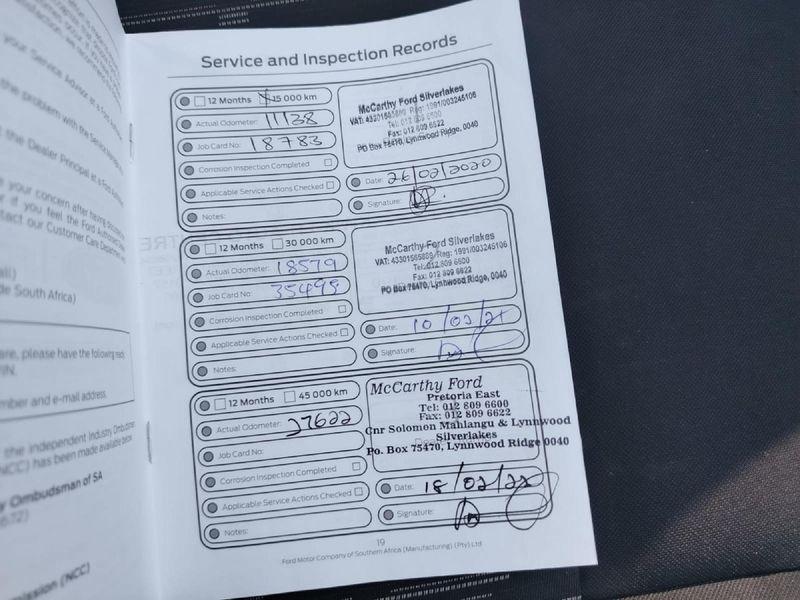 Service and Inspection Records
12 Months 15 000 km
Actual Odometer: 11138
Job Card No: 18783
Corrosion Inspection Completed
Applicable Service Actions Checked
Notes:
McCarthy Ford Silverlakes
Reg: 1991/003245106
Tel: 012 809 6600
Fax: 012 809 6622
PO Box 75470, Lynnwood Ridge, 0040
Date: 26/02/2020
Signature:
12 Months 30 000 km
Actual Odometer: 18579
Job Card No: 35495
Corrosion Inspection Completed
Applicable Service Actions Checked
Notes:
McCarthy Ford Silverlakes
Reg: 1991/003245106
Tel: 012 809 6600
Fax: 012 809 6622
PO Box 75470, Lynnwood Ridge, 0040
Date: 10/02/21
Signature:
12 Months 45 000 km
Actual Odometer: 27622
Job Card No:
Corrosion Inspection Completed
Applicable Service Actions Checked
Notes:
McCarthy Ford
Pretoria East
Tel: 012 809 6600
Fax: 012 809 6622
Cnr Solomon Mahlangu & Lynnwood
Silverlakes
Po. Box 75470, Lynnwood Ridge 0040
Date: 18/02/22
Signature:
19
Ford Motor Company of Southern Africa (Manufacturing) (Pty) Ltd
your Service Advisor at a Ford
the problem with the Service
the Dealer Principal at a Ford
your concern after having
if you feel the Ford Authorised
our Customer Care Department
South Africa)
please have the following
and e-mail address.
the independent Industry
(NCC) has been made available
Ombudsman of SA
(NCC)